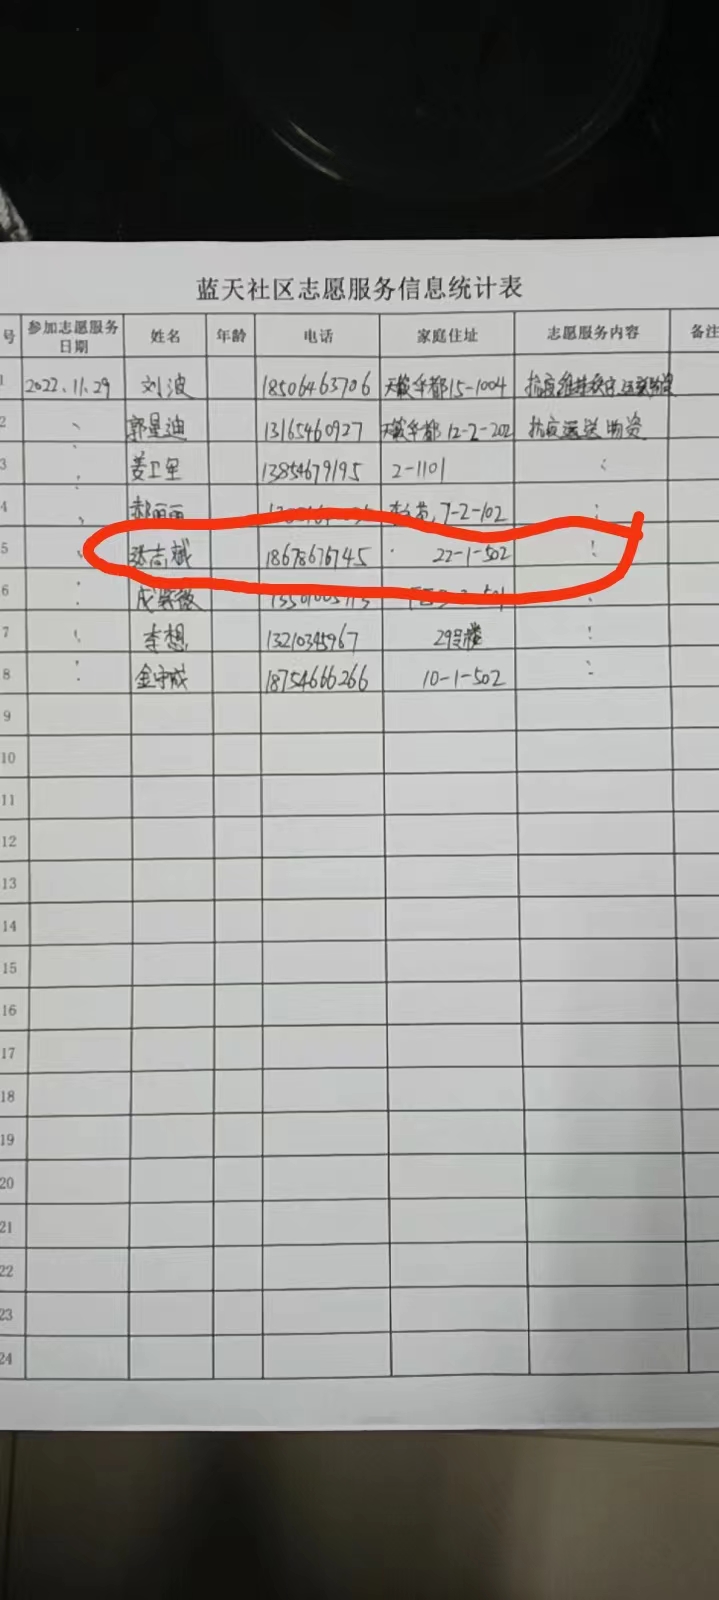 蓝天社区志愿服务信息统计表
号 参加志愿服务日期 姓名 年龄 电话 家庭住址 志愿服务内容 备注
1 2022.11.29 刘波 18506463706 天毓华都15-1004 抗疫维持秩序运送物资
2 郭星迪 13165460927 天毓华都12-2-202 抗疫运送物资
3 13854679195 2-1101
4 郝丽丽 7-2-102
5 张志斌 18678676745 22-1-502
6
7 李想 13210345967 29号楼
8 金守成 18754666266 10-1-502
9
10
11
12
13
14
15
16
17
18
19
20
21
22
23
24